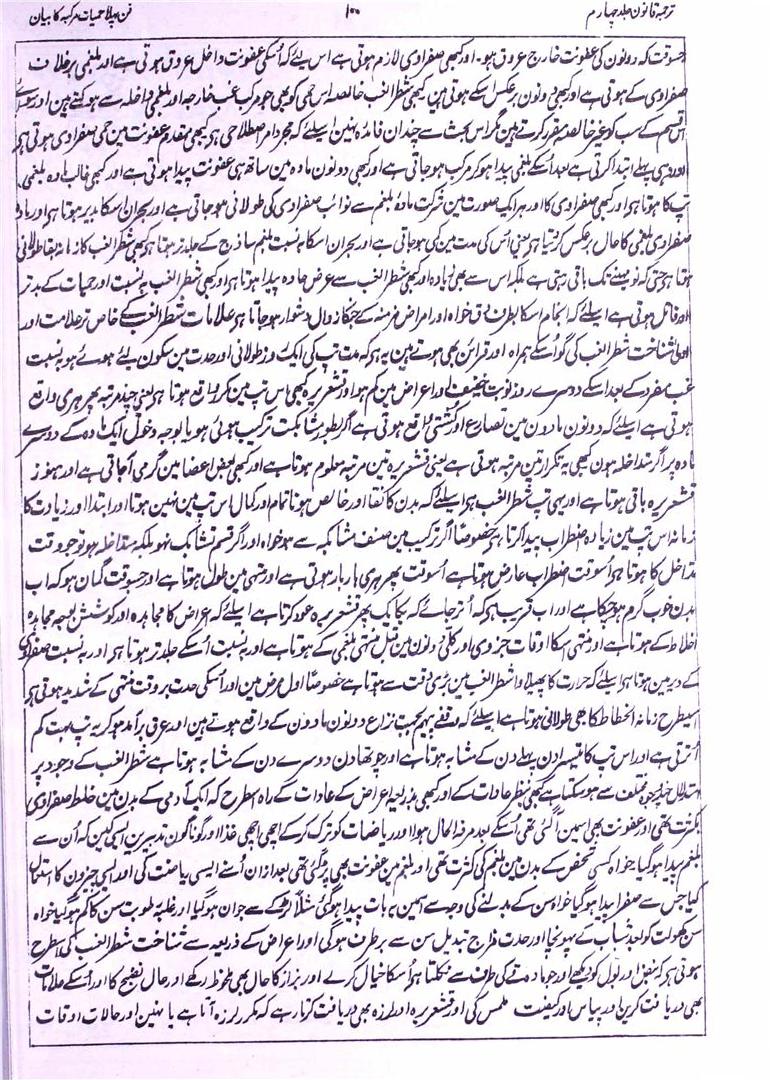 ترجمہ قانون جلد چہارم ۱۰۰ فن پہلا حمیات مرکبہ کا بیان
جسوقت کہ دونون کی عفونت خارج عروق ہو۔ اور کبھی صفراوی لازم ہوتی ہے اس لیے کہ اُسکی عفونت داخل عروق ہوتی ہے اور بلغمی برخلاف
صفراوی کے ہوتی ہے اور کبھی دونون برعکس اسکے ہوتی ہین کبھی شطر الغب خالصہ اس حمی کو بھی جو مرکب غب خارجہ اور بلغمی داخلہ سے ہو کہتے ہین اور سوائے
اس قسم کے سب کو غیر خالصہ مقرر کرتے ہین مگر اس بحث سے چندان فائدہ نہین اسلیے کہ مجرد امر اصطلاحی ہی کبھی مقدم عفونت مین حمی صفراوی ہوتی ہی
اور وہی پہلے ابتدا کرتی ہے بعد اُسکے بلغمی پیدا ہو کر مرکب ہو جاتی ہے اور کبھی دونون مادہ مین ساتھ ہی عفونت پیدا ہوتی ہے اور کبھی غالب مادہ بلغمی
تپ کا ہوتا ہی اور کبھی صفراوی کا اور ہر ایک صورت مین شرکت مادہ بلغم سے نوائب صفراوی کی طولانی ہو جاتی ہے اور بحران اسکا بدیر ہوتا ہی اور مادہ
صفراوی بلغمی کا حال برعکس کر دیتا ہی یعنی اُس کی مدت مین کمی ہو جاتی ہے اور بحران اسکا بہ نسبت بلغم ساذج کے جلد تر ہوتا ہی کبھی شطر الغب کا زمانہ بقا طولانی
ہوتا ہی حتی کہ نو مہینے تک باقی رہتی ہے بلکہ اس سے بھی زیادہ اور کبھی شطر الغب سے عرض حادہ پیدا ہوتا ہی اور کبھی شطر الغب بہ نسبت اور حمیات کے بدتر
اور قاتل ہوتی ہے اسلیے کہ انجام اسکا بطرف دق خواہ اور امراض مزمنہ کے جنکا زوال دشوار ہو جاتا ہی علامات شطر الغب کے خاص تر علامت اور
اولی شناخت شطر الغب کی گو اُسکے ہمراہ اور قرائن بھی ہوتے ہین یہ ہی کہ مدت تپ کی ایک روز طولانی اور حدت مین سکون لیے ہوے ہو بہ نسبت
غب مفرد کے بعد اسکے دوسرے روز نوبت خفیف اور اعراض مین کم ہو اور قشعریرہ کبھی اس تپ مین مکرر واقع ہوتا ہی یعنی چند مرتبہ پھر ہری واقع
ہوتی ہے اسلیے کہ دونون مادون مین تصارع اور کشتی واقع ہوتی ہے اگر بطور مشابکت ترکیب ہوئی ہو یا بوجہ دخول ایک مادہ کے دوسرے
مادہ پر اگر متداخلہ ہون کبھی یہ تکرار تین مرتبہ ہوتی ہے یعنی قشعریرہ تین مرتبہ معلوم ہوتا ہے اور کبھی بعض اعضا مین گرمی آجاتی ہے اور ہنوز
قشعریرہ باقی ہوتا ہے اور یہی تپ شطر الغب ہی اسلیے کہ بدن کا نقا اور خالص ہونا تمام اور کمال اس تپ مین نہین ہوتا اور ابتدا اور زیادت کا
زمانہ اس تپ مین زیادہ اضطراب پیدا کرتا ہی خصوصاً اگر ترکیب مین صنف مشابکہ سے ہو خواہ اور اگر قسم تشابک نہو بلکہ متداخلہ ہو تو جو وقت
تداخل کا ہوتا ہی اُسوقت اضطراب عارض ہوتا ہے اُسوقت پھر ہری بار بار ہوتی ہے اور منتہی مین طول ہوتا ہے اور جسوقت گمان ہو کہ اب
بدن خوب گرم ہو چکا ہے اور اب قریب ہی کہ اُتر جائے کہ یکایک پھر قشعریرہ عود کرتا ہے اسلیے کہ اعراض کا مجاہدہ اور کوشش بوجہ مجاہدہ
اخلاط کے ہوتا ہے اور منتہی اسکا اوقات جزوی اور کلی دونون مین قبل منتہی بلغمی کے ہوتا ہے اور بہ نسبت اُسکے جلد تر ہوتا ہی اور بہ نسبت صفراوی
کے دیر مین ہوتا ہی اسلیے کہ حرارت کا پھیلاو شطر الغب مین بڑی دقت سے ہوتا ہے خصوصاً اول مرض مین اور اُسکی حدت بر وقت منتہی کے شدید ہوتی ہی
اسیطرح زمانہ انحطاط کا بھی طولانی ہوتا ہے اسلیے کہ وقفے بہم بسبب نزاع دونون مادون کے واقع ہوتے ہین اور عرق برآمد ہو کر یہ تپ بہت کم
اُترتی ہے اور اس تپ کا تیسرا دن پہلے دن کے مشابہ ہوتا ہے اور چوتھا دن دوسرے دن کے مشابہ ہوتا ہے شطر الغب کے وجود پر
استدلال چند وجوہ مختلف سے ہو سکتا ہے کبھی بنظر عادات کے اور کبھی بذریعہ اعراض کے عادات کے راہ اسطرح کہ ایک آدمی کے بدن مین خلط صفراوی
بکثرت تھی اور عفونت بھی اسمین آگئی تھی اُسکے بعد مرفہ الحال ہوا اور ریاضات کو ترک کر کے اچھی اچھی غذا اور گوناگون تدبیرین ایسی کین کہ اُن سے
بلغم پیدا ہو گیا خواہ کسی شخص کے بدن مین بلغم کی کثرت تھی اور بلغم مین عفونت بھی پڑ گئی تھی بعد ازان اُسنے ایسی ریاضت کی اور ایسی چیزون کا استعمال
کیا جس سے صفرا پیدا ہو گیا خواہ سن کے بدلنے کی وجہ سے ہمین یہ بات پیدا ہو گئی مثلاً لڑکے سے جوان ہو گیا اور غلبہ رطوبت سن کا کم ہو گیا خواہ
سن کہولت کو بعد شباب کے پہونچا اور حدت مزاج تبدیل سن سے برطرف ہو گئی اور اعراض کے ذریعہ سے شناخت شطر الغب کی اسطرح
ہوتی ہی کہ نبض اور بول کو دیکھے اور جو مادہ قے کی طرف سے نکلتا ہی اُسکا خیال کرے اور براز کا حال بھی ملحوظ رکھے اور حال نضج کا اور اُسکے علامات
بھی دریافت کرین اور پیاس اور کیفیت ملمس کی اور قشعریرہ اور لرزہ بھی دریافت کرتا رہے کہ مکرر لرزہ آتا ہے یا نہین اور حالات اوقات